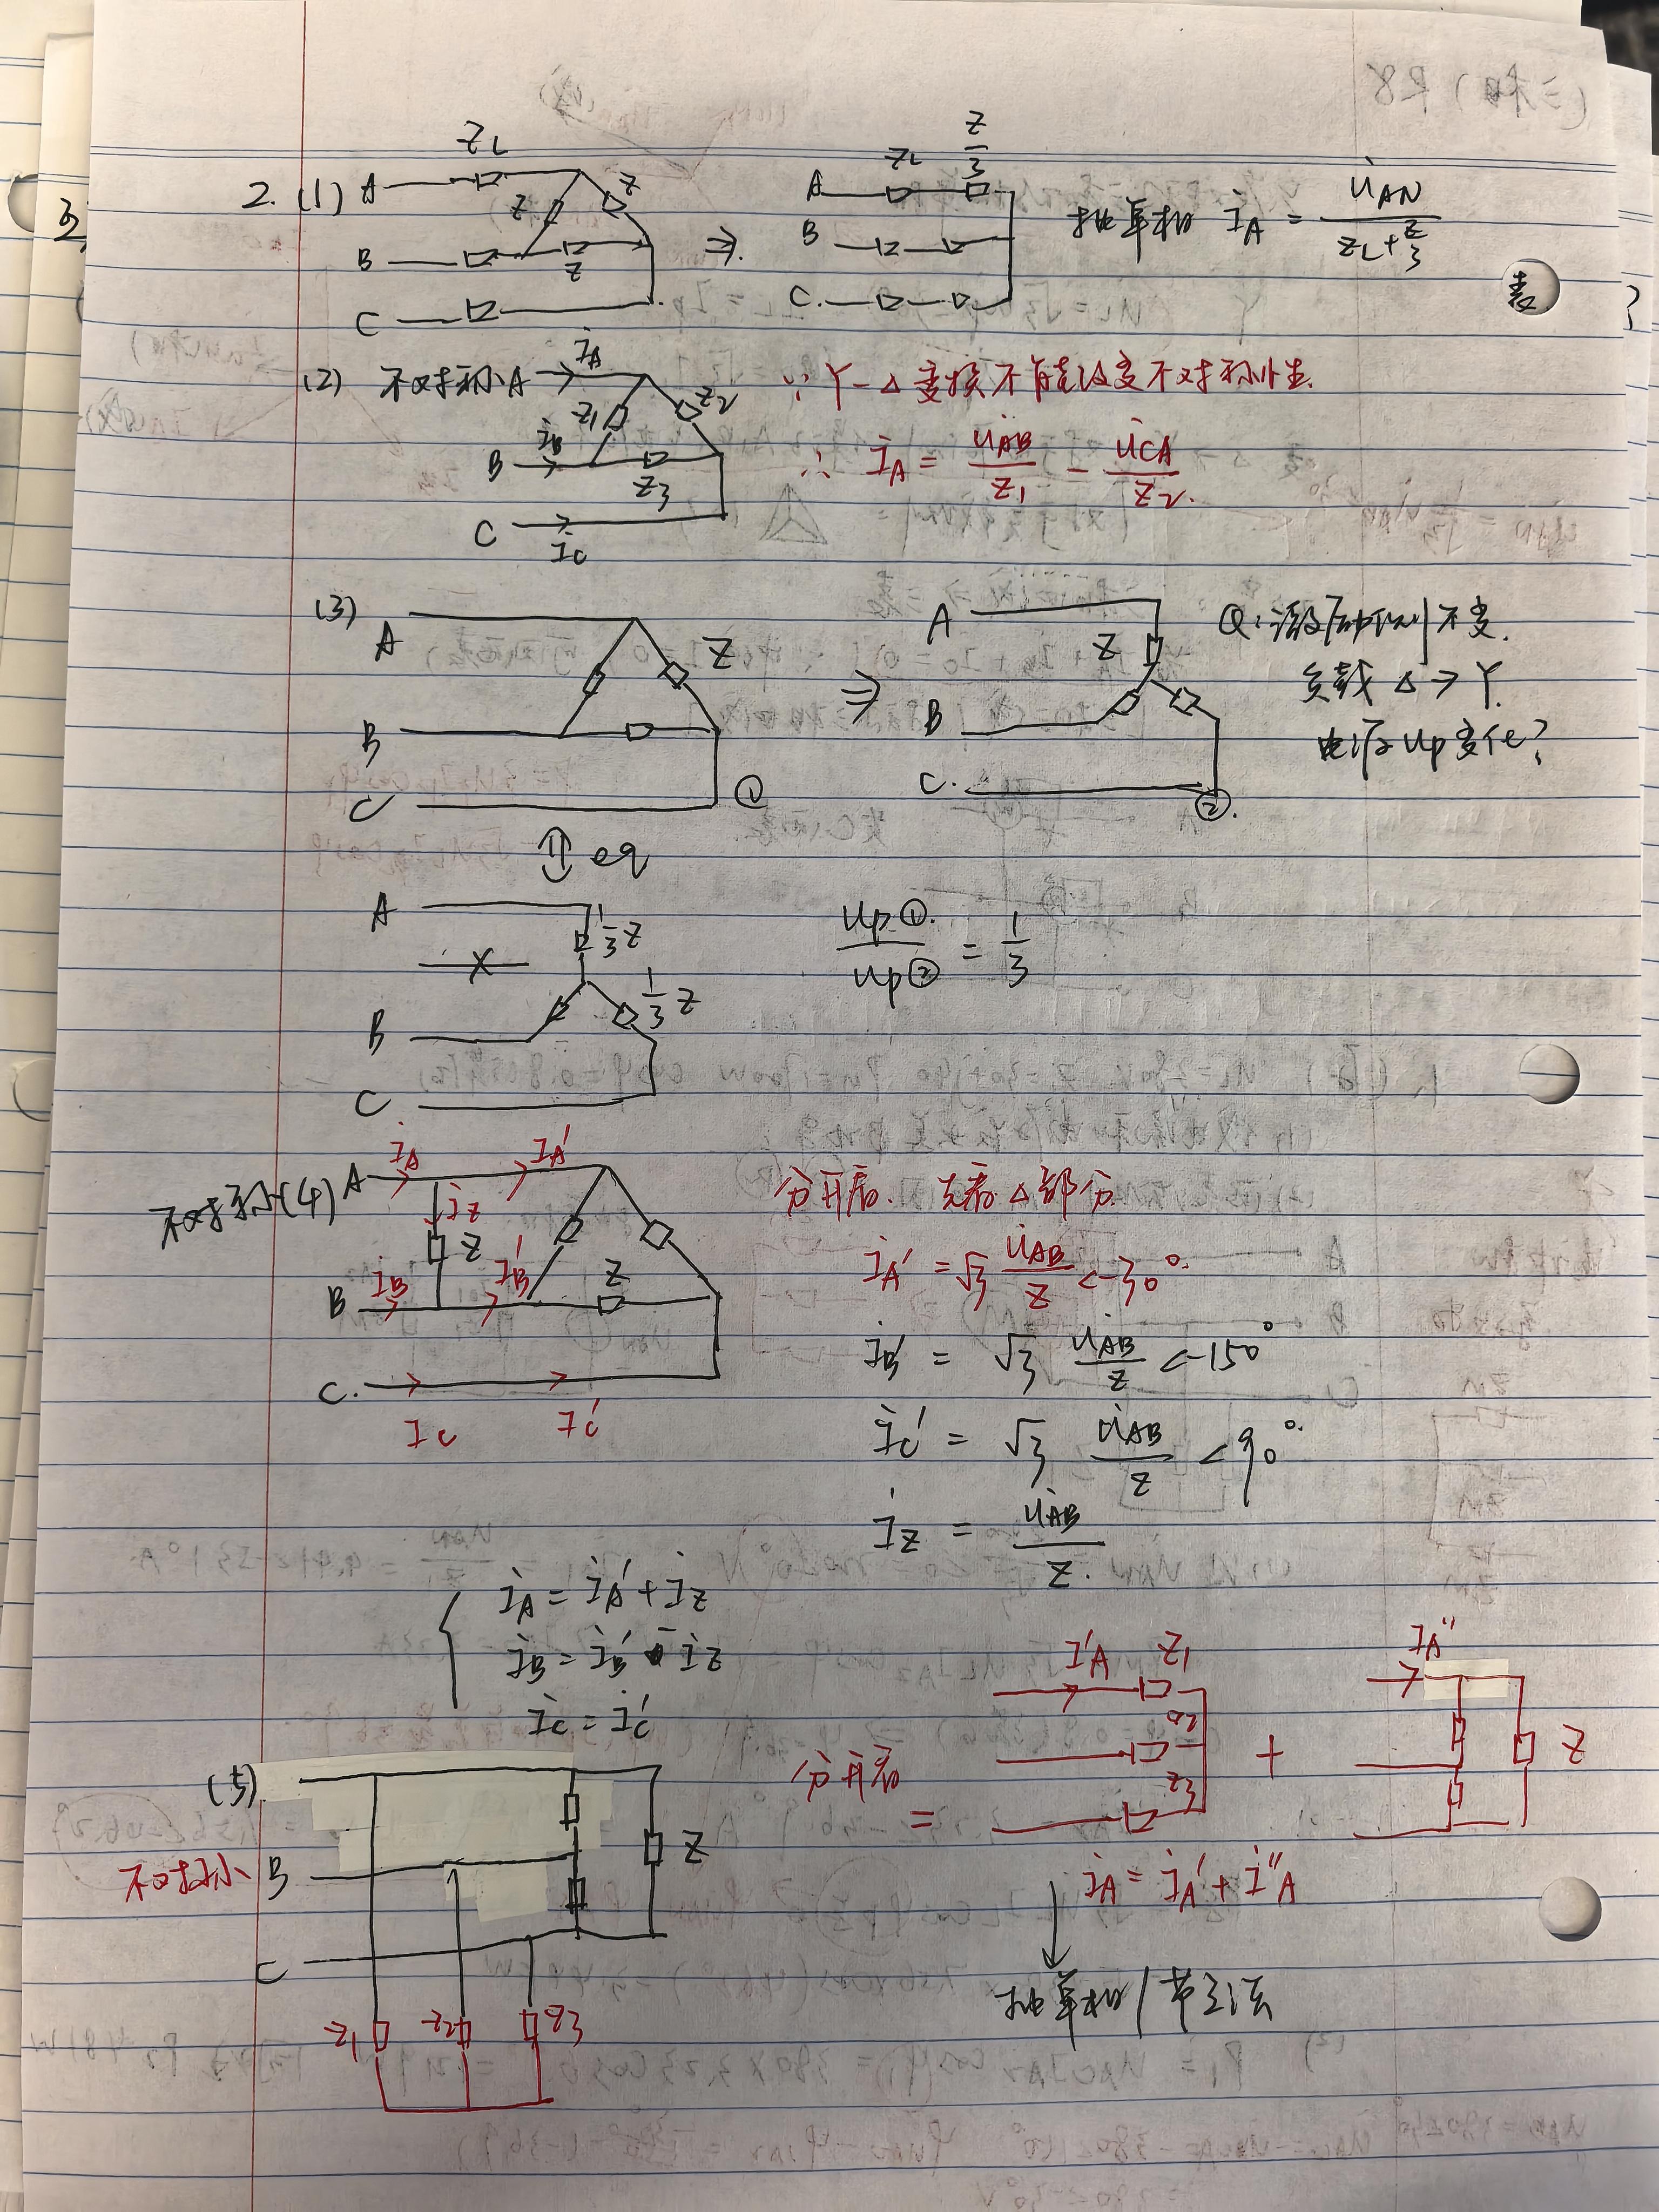 2. (1) A Z_L Z Z B Z C ⇒ A Z_L Z/3 B C. 抽单相 İ_A = U̇_AN / (Z_L + Z/3)
(2) 不对称 A İ_A Z1 Z2 B İ_B Z3 C İ_C
∵ Y-Δ变换不能改变不对称性.
∴ İ_A = U̇_AB / Z1 - U̇_CA / Z2.
(3) A B C Z ① ⇒ A Z B C. ②.
不变.
负载 Δ→Y.
电源Up变化?
⇕ eq
A 1/3 Z
X
B 1/3 Z
C
Up①. / Up② = 1/3
不对称(4) A İ_A I_A′ İ_Z Z B I_B I_B′ Z C. I_C I_C′
分开看. 先看Δ部分.
İ_A′ = √3 U̇_AB / Z <-30°.
İ_B′ = √3 U̇_AB / Z <-150°
İ_C′ = √3 U̇_AB / Z <90°.
İ_Z = U̇_AB / Z.
{ İ_A = İ_A′ + İ_Z
İ_B = İ_B′ - İ_Z
İ_C = İ_C′
(5). 不对称 B C Z Z1 Z2 Z3
分开看 = I′_A Z1 Z2 Z3 + I_A″ Z
İ_A = İ_A′ + İ″_A
↓
抽单相/节点法
表
?